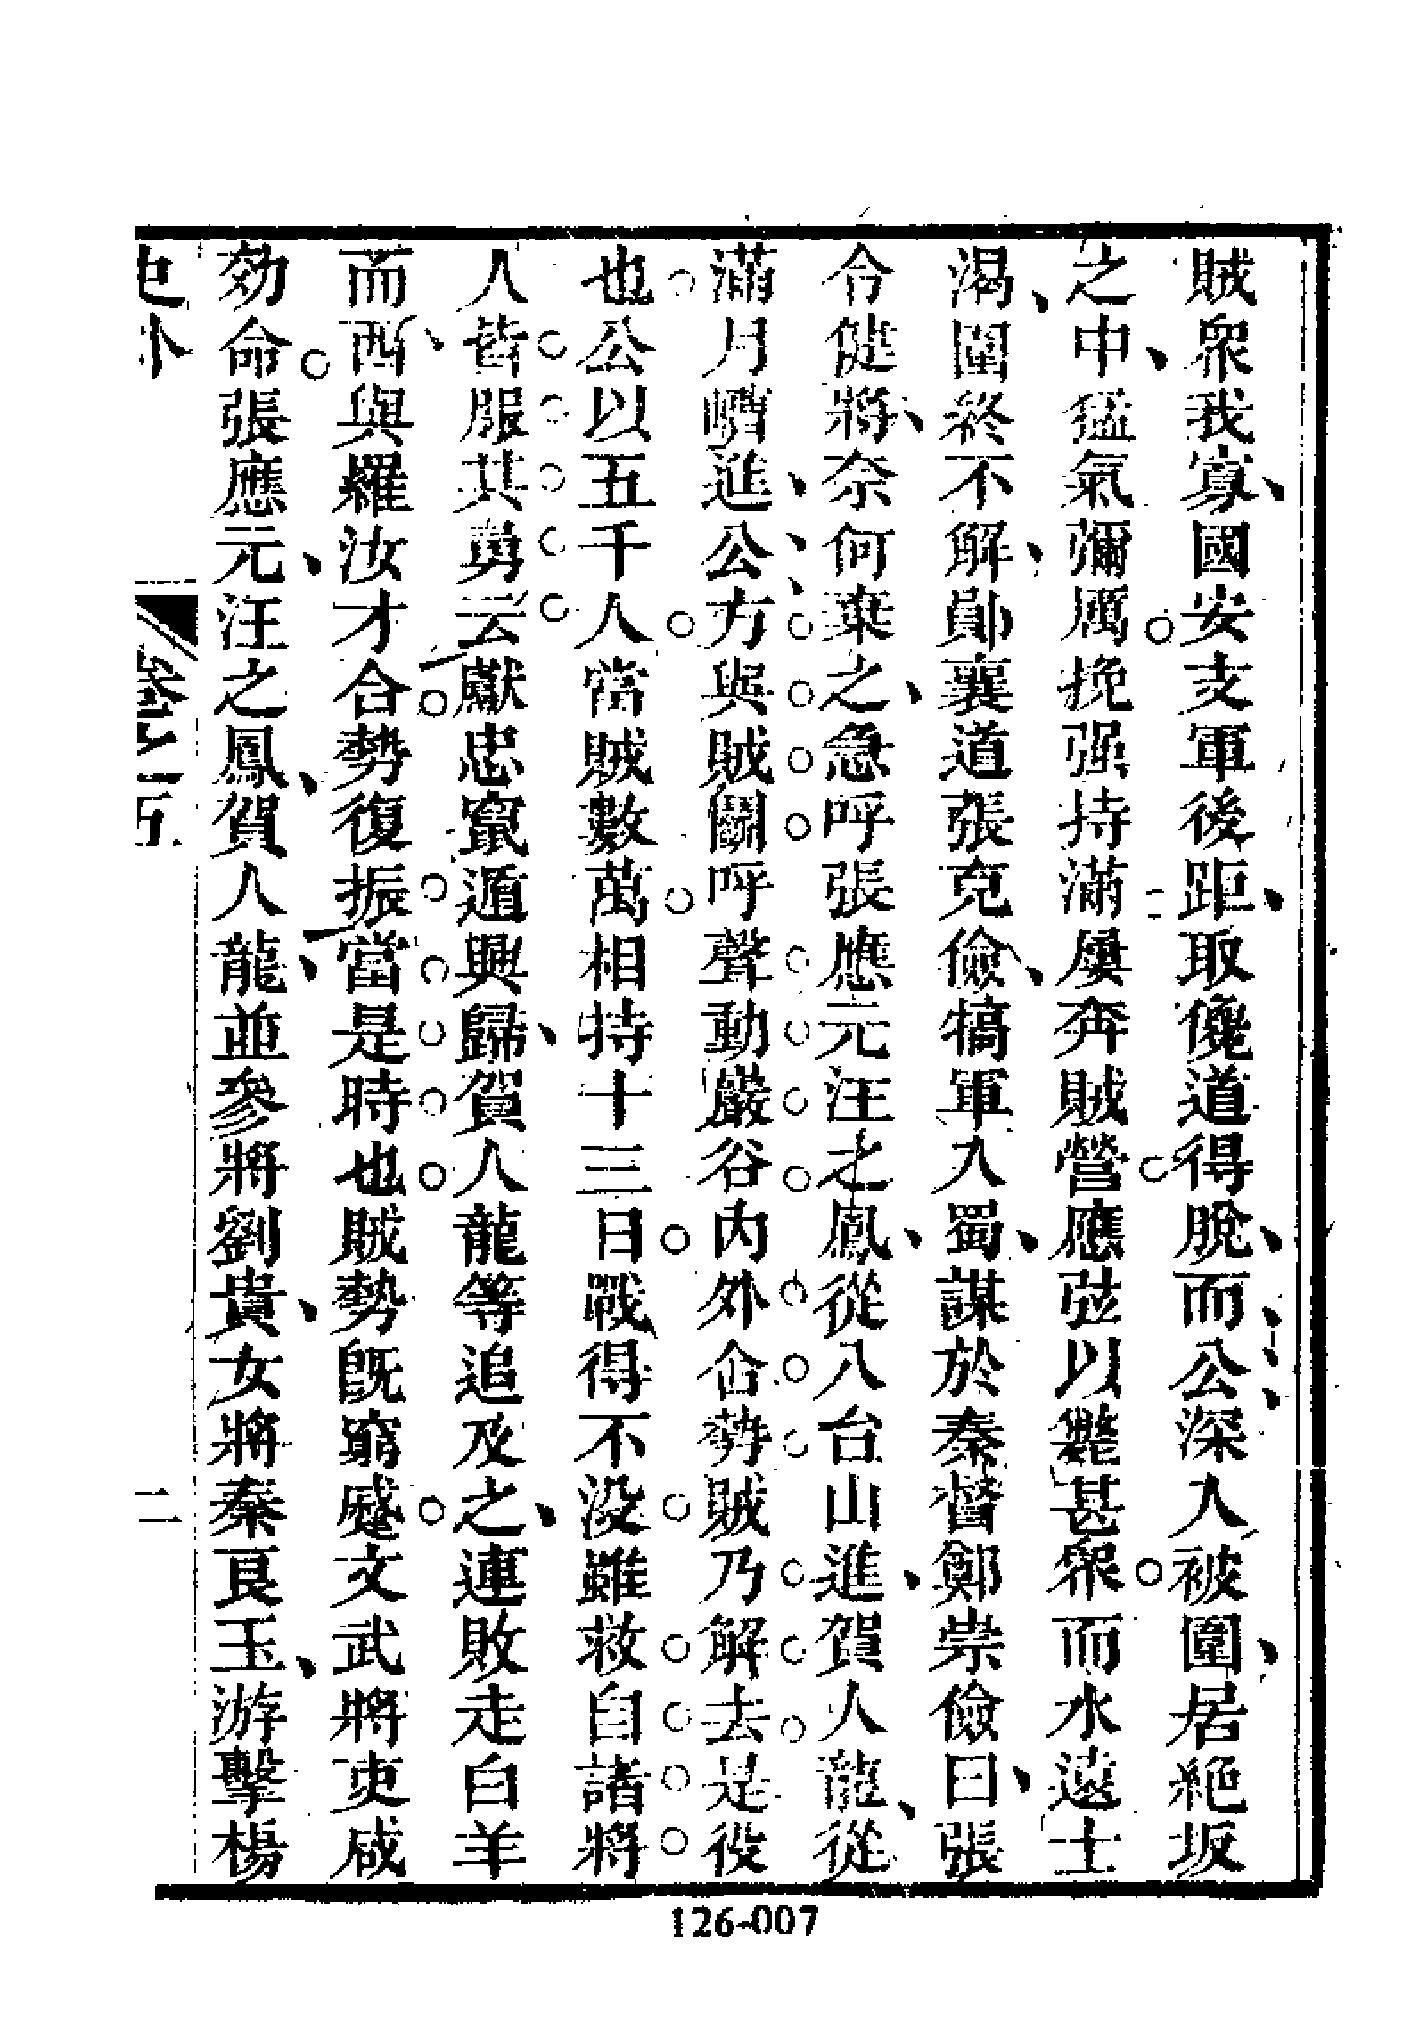 賊衆我寡國安支軍後距取儳道得脫而公深入被圍居絶坂
之中猛氣彌厲挽强持滿屢奔賊營應弦以斃甚衆而水遠士
渴圍終不解鄖襄道張克儉犒軍入蜀謀於秦督鄭崇儉曰張
令健將奈何棄之急呼張應元汪之鳳從八台山進賀人龍從
滿月嶆進公方與賊鬭呼聲動巖谷內外合勢賊乃解去是役
也公以五千人當賊數萬相持十三日戰得不没雖救自諸將
人皆服其勇云獻忠竄遁興歸賀人龍等追及之連敗走白羊
而西與羅汝才合勢復振當是時也賊勢旣窮蹙文武將吏咸
効命張應元汪之鳳賀人龍並參將劉貴女將秦良玉游擊楊
史外
卷之五
二
126-007